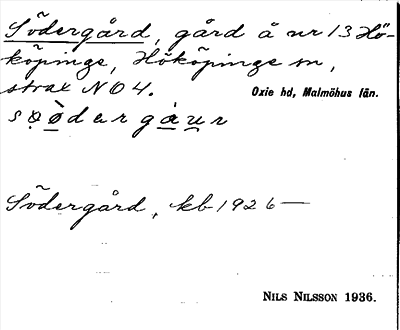 Södergård, gård å nr 13 Hö-
köpinge, Hököpinge sn,
strax NO 4.
Oxie hd, Malmöhus län.
Södergård, kb 1926—
NILS NILSSON 1936.